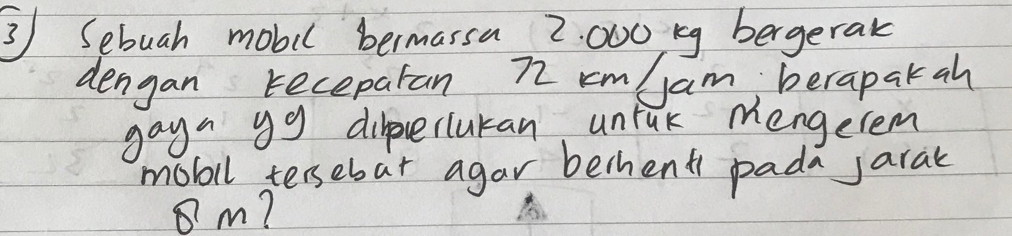 3) Sebuah mobil bermassa 2.000 kg bergerak
dengan kecepatan 72 km/jam. berapakah
gaya yg diperlukan untuk mengerem
mobil tersebat agar berhenti pada jarak
8 m?